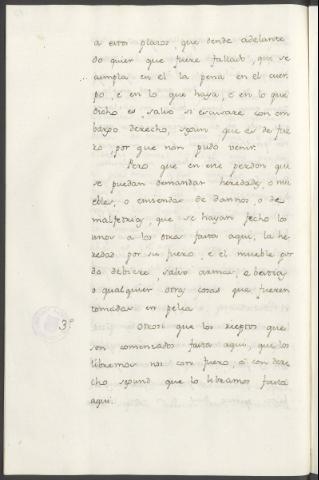 a estos plazos, que dende adelante
do quier que fuere fallado, que se
cumpla en el la pena en el cuer
po, e en lo que haya, e en lo que
dicho es, salvo si escusare con em
bargo derecho, segun que es de fue
ro, por que non pudo venir.
Pero que en este perdon que
se puedan demandar heredades, o mu
ebles, o emiendas de dannos, o de
malfetrias, que se hayan fecho los
unos a los otros fasta aqui, la he
redad por su fuero, e el mueble por
do debiere, salvo armas, e bestias
o qualquier otras cosas que fueren
tomadas en pelea
3º Otrosi que los rieptos que
son comenzados fasta aqui, que los
libremos nos con fuero, o con dere
cho segund que lo libramos fasta
aqui.